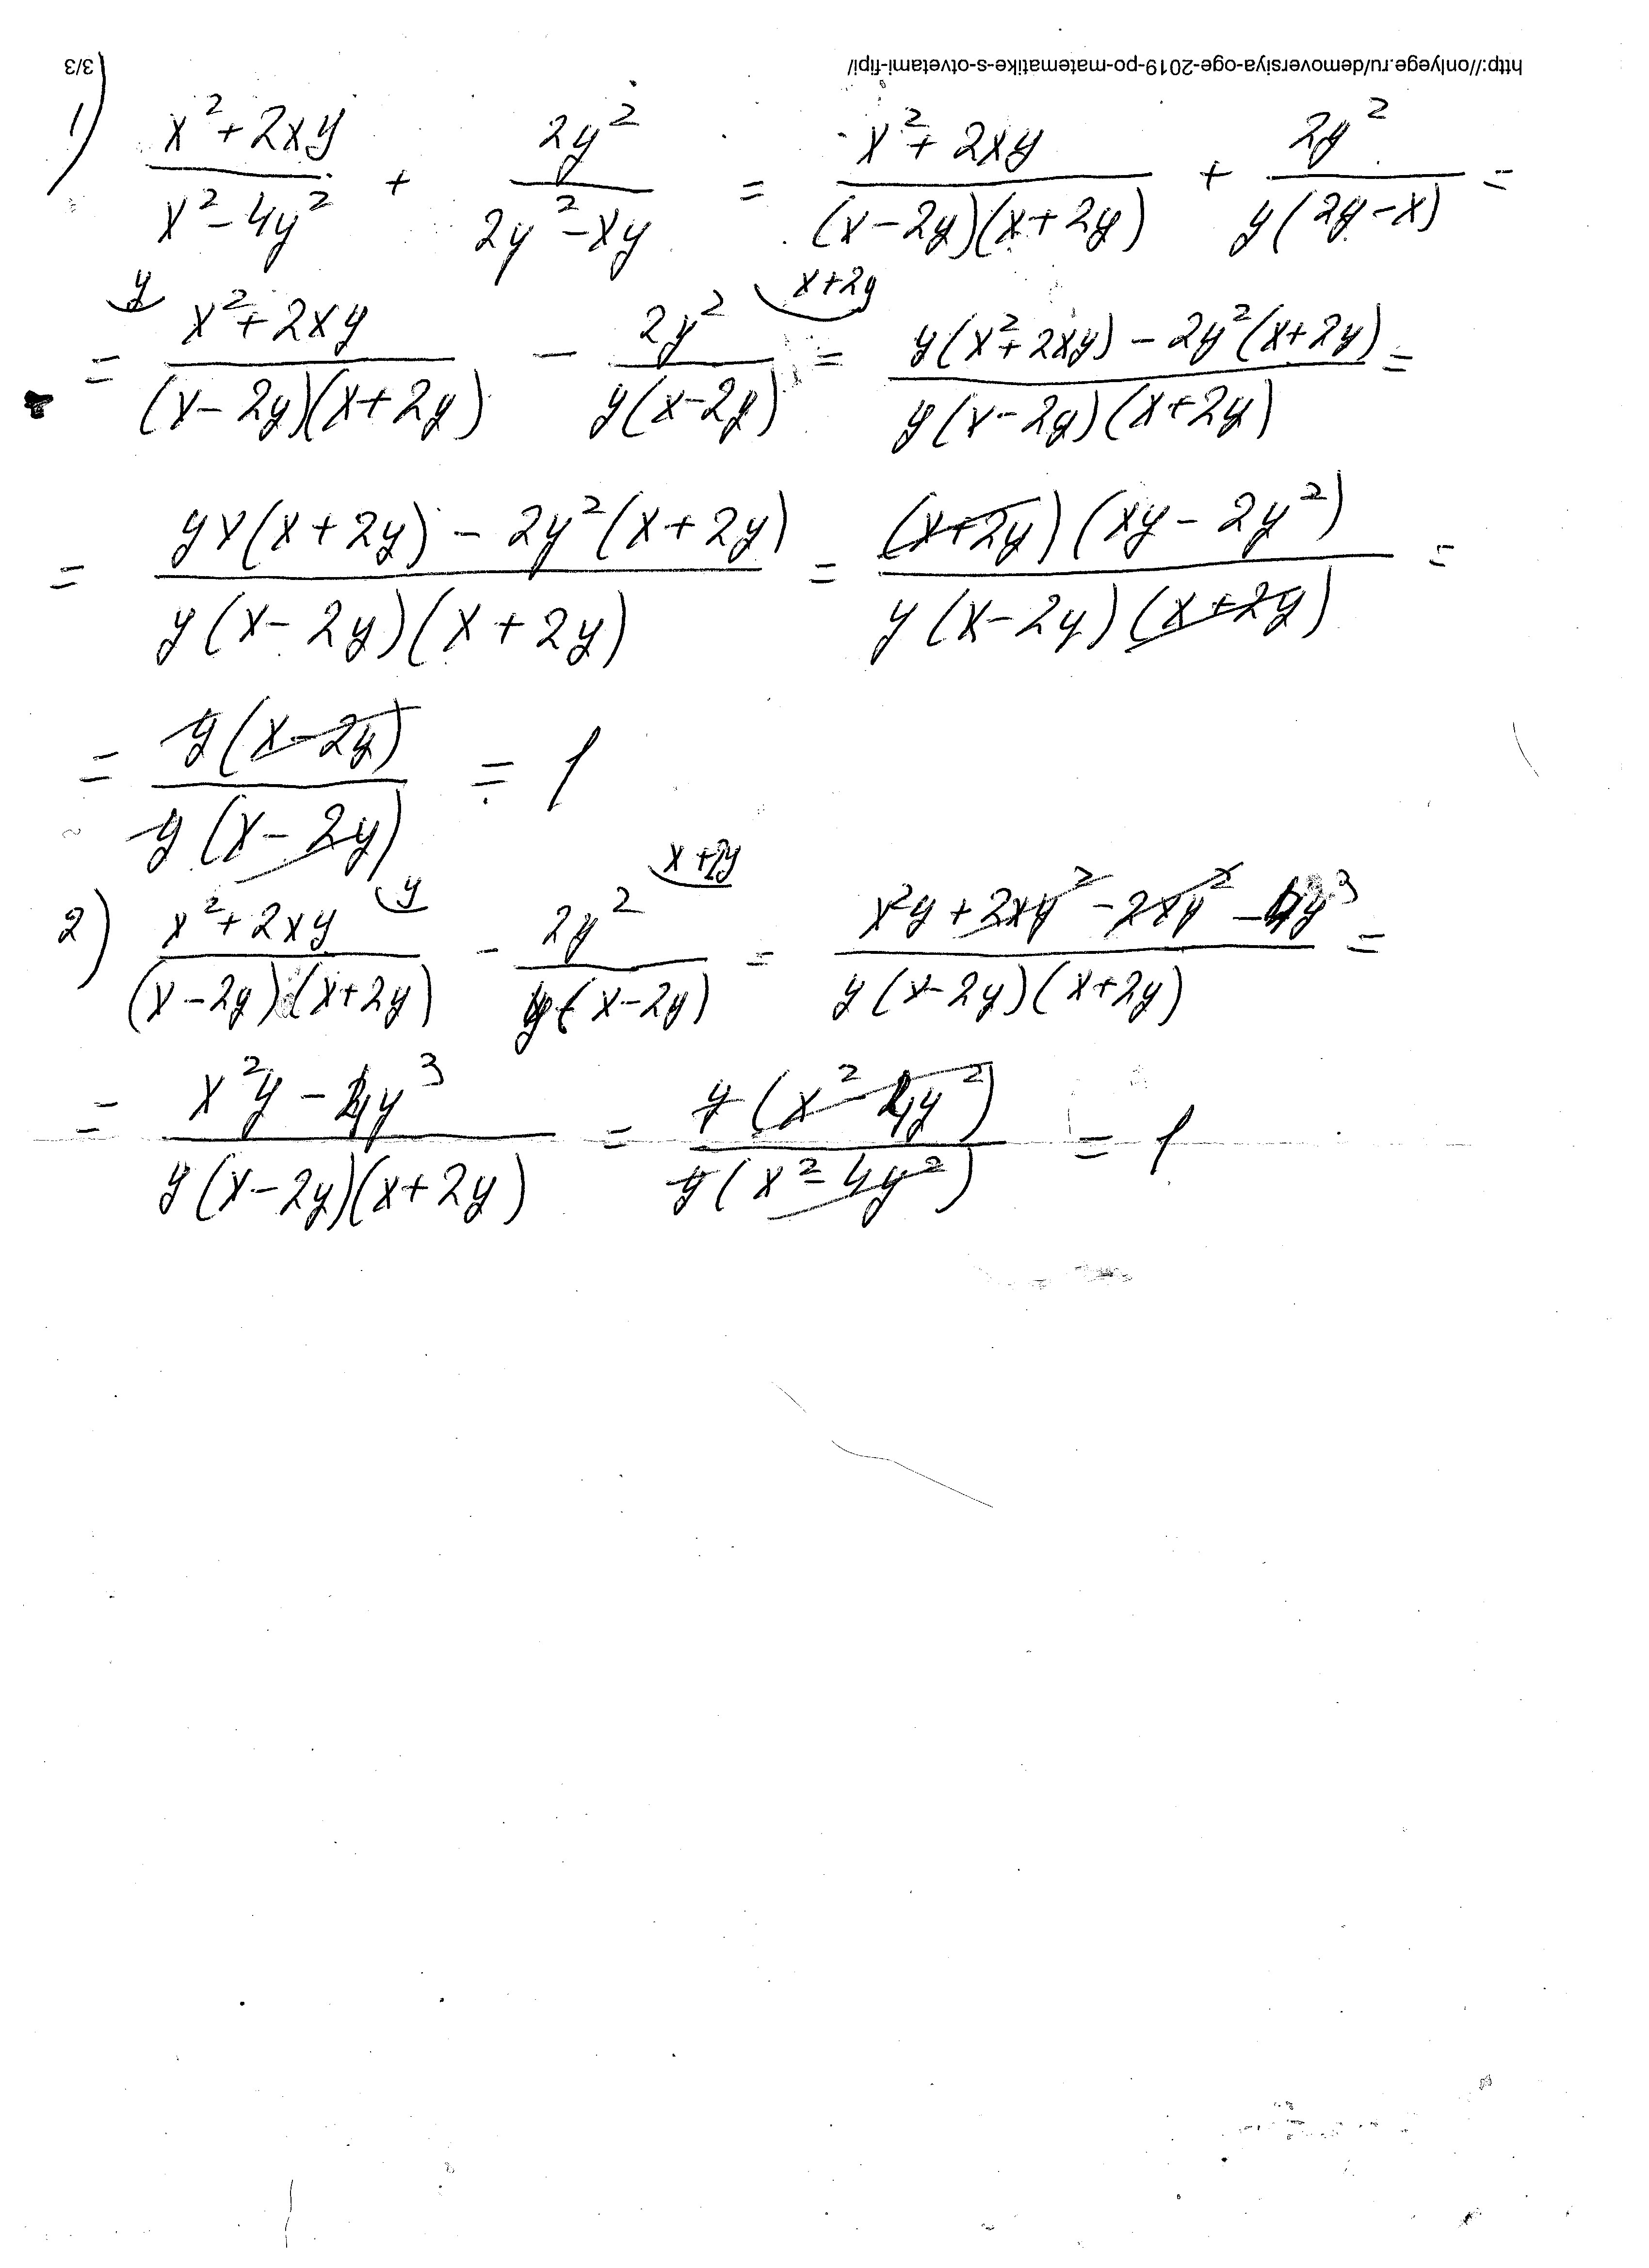 http://onlyege.ru/demoversiya-oge-2019-po-matematike-s-otvetami-fipi/ 3/3
1) (x²+2xy)/(x²-4y²) + 2y²/(2y²-xy) = (x²+2xy)/((x-2y)(x+2y)) + 2y²/(y(2y-x)) =
= (x²+2xy)/((x-2y)(x+2y)) ⌣y - 2y²/(y(x-2y)) ⌣x+2y = (y(x²+2xy)-2y²(x+2y))/(y(x-2y)(x+2y)) =
= (yx(x+2y)-2y²(x+2y))/(y(x-2y)(x+2y)) = ((x+2y)(xy-2y²))/(y(x-2y)(x+2y)) =
= y(x-2y)/(y(x-2y)) = 1
2) (x²+2xy)/((x-2y)(x+2y)) ⌣y - 2y²/(y(x-2y)) ⌣x+2y = (x²y+2xy²-2xy²-4y³)/(y(x-2y)(x+2y)) =
= (x²y-4y³)/(y(x-2y)(x+2y)) = y(x²-4y²)/(y(x²-4y²)) = 1